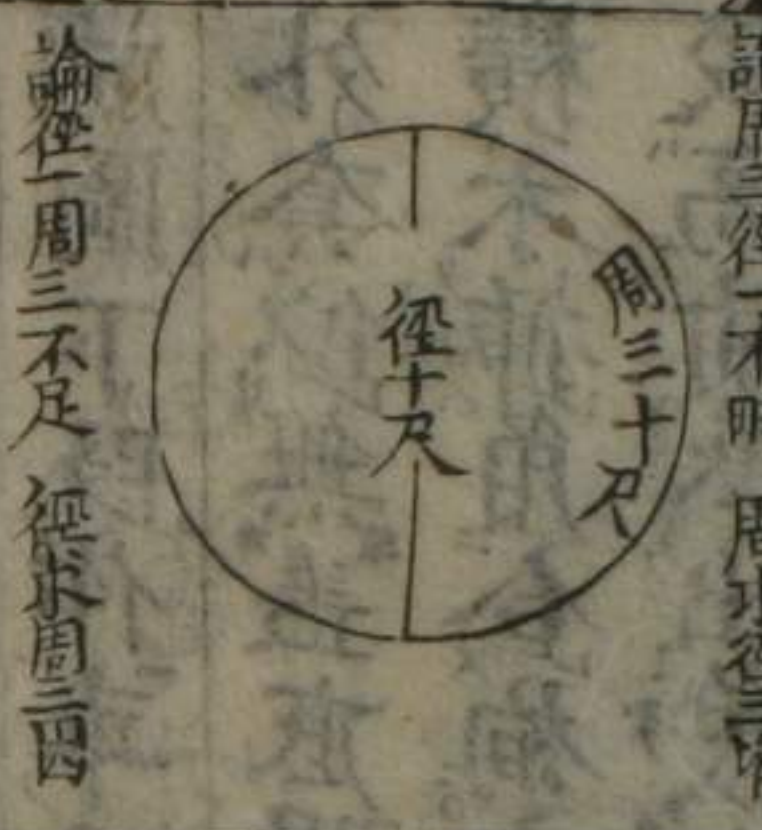 論周三徑一不明 周求徑三增
周三十尺
徑十尺
論徑一周三不足 徑求周三因